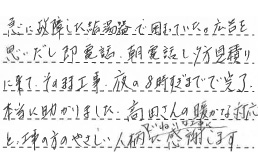 急に故障した給湯器で困っていたが広告を
思いだし即電話、朝電話し夕方見積り
に来て、そのまま工事、夜の8時すぎまでで完了。
本当に助かりました。高田さんの暖かな対応
と、工事の方のやさしい人柄に感謝します